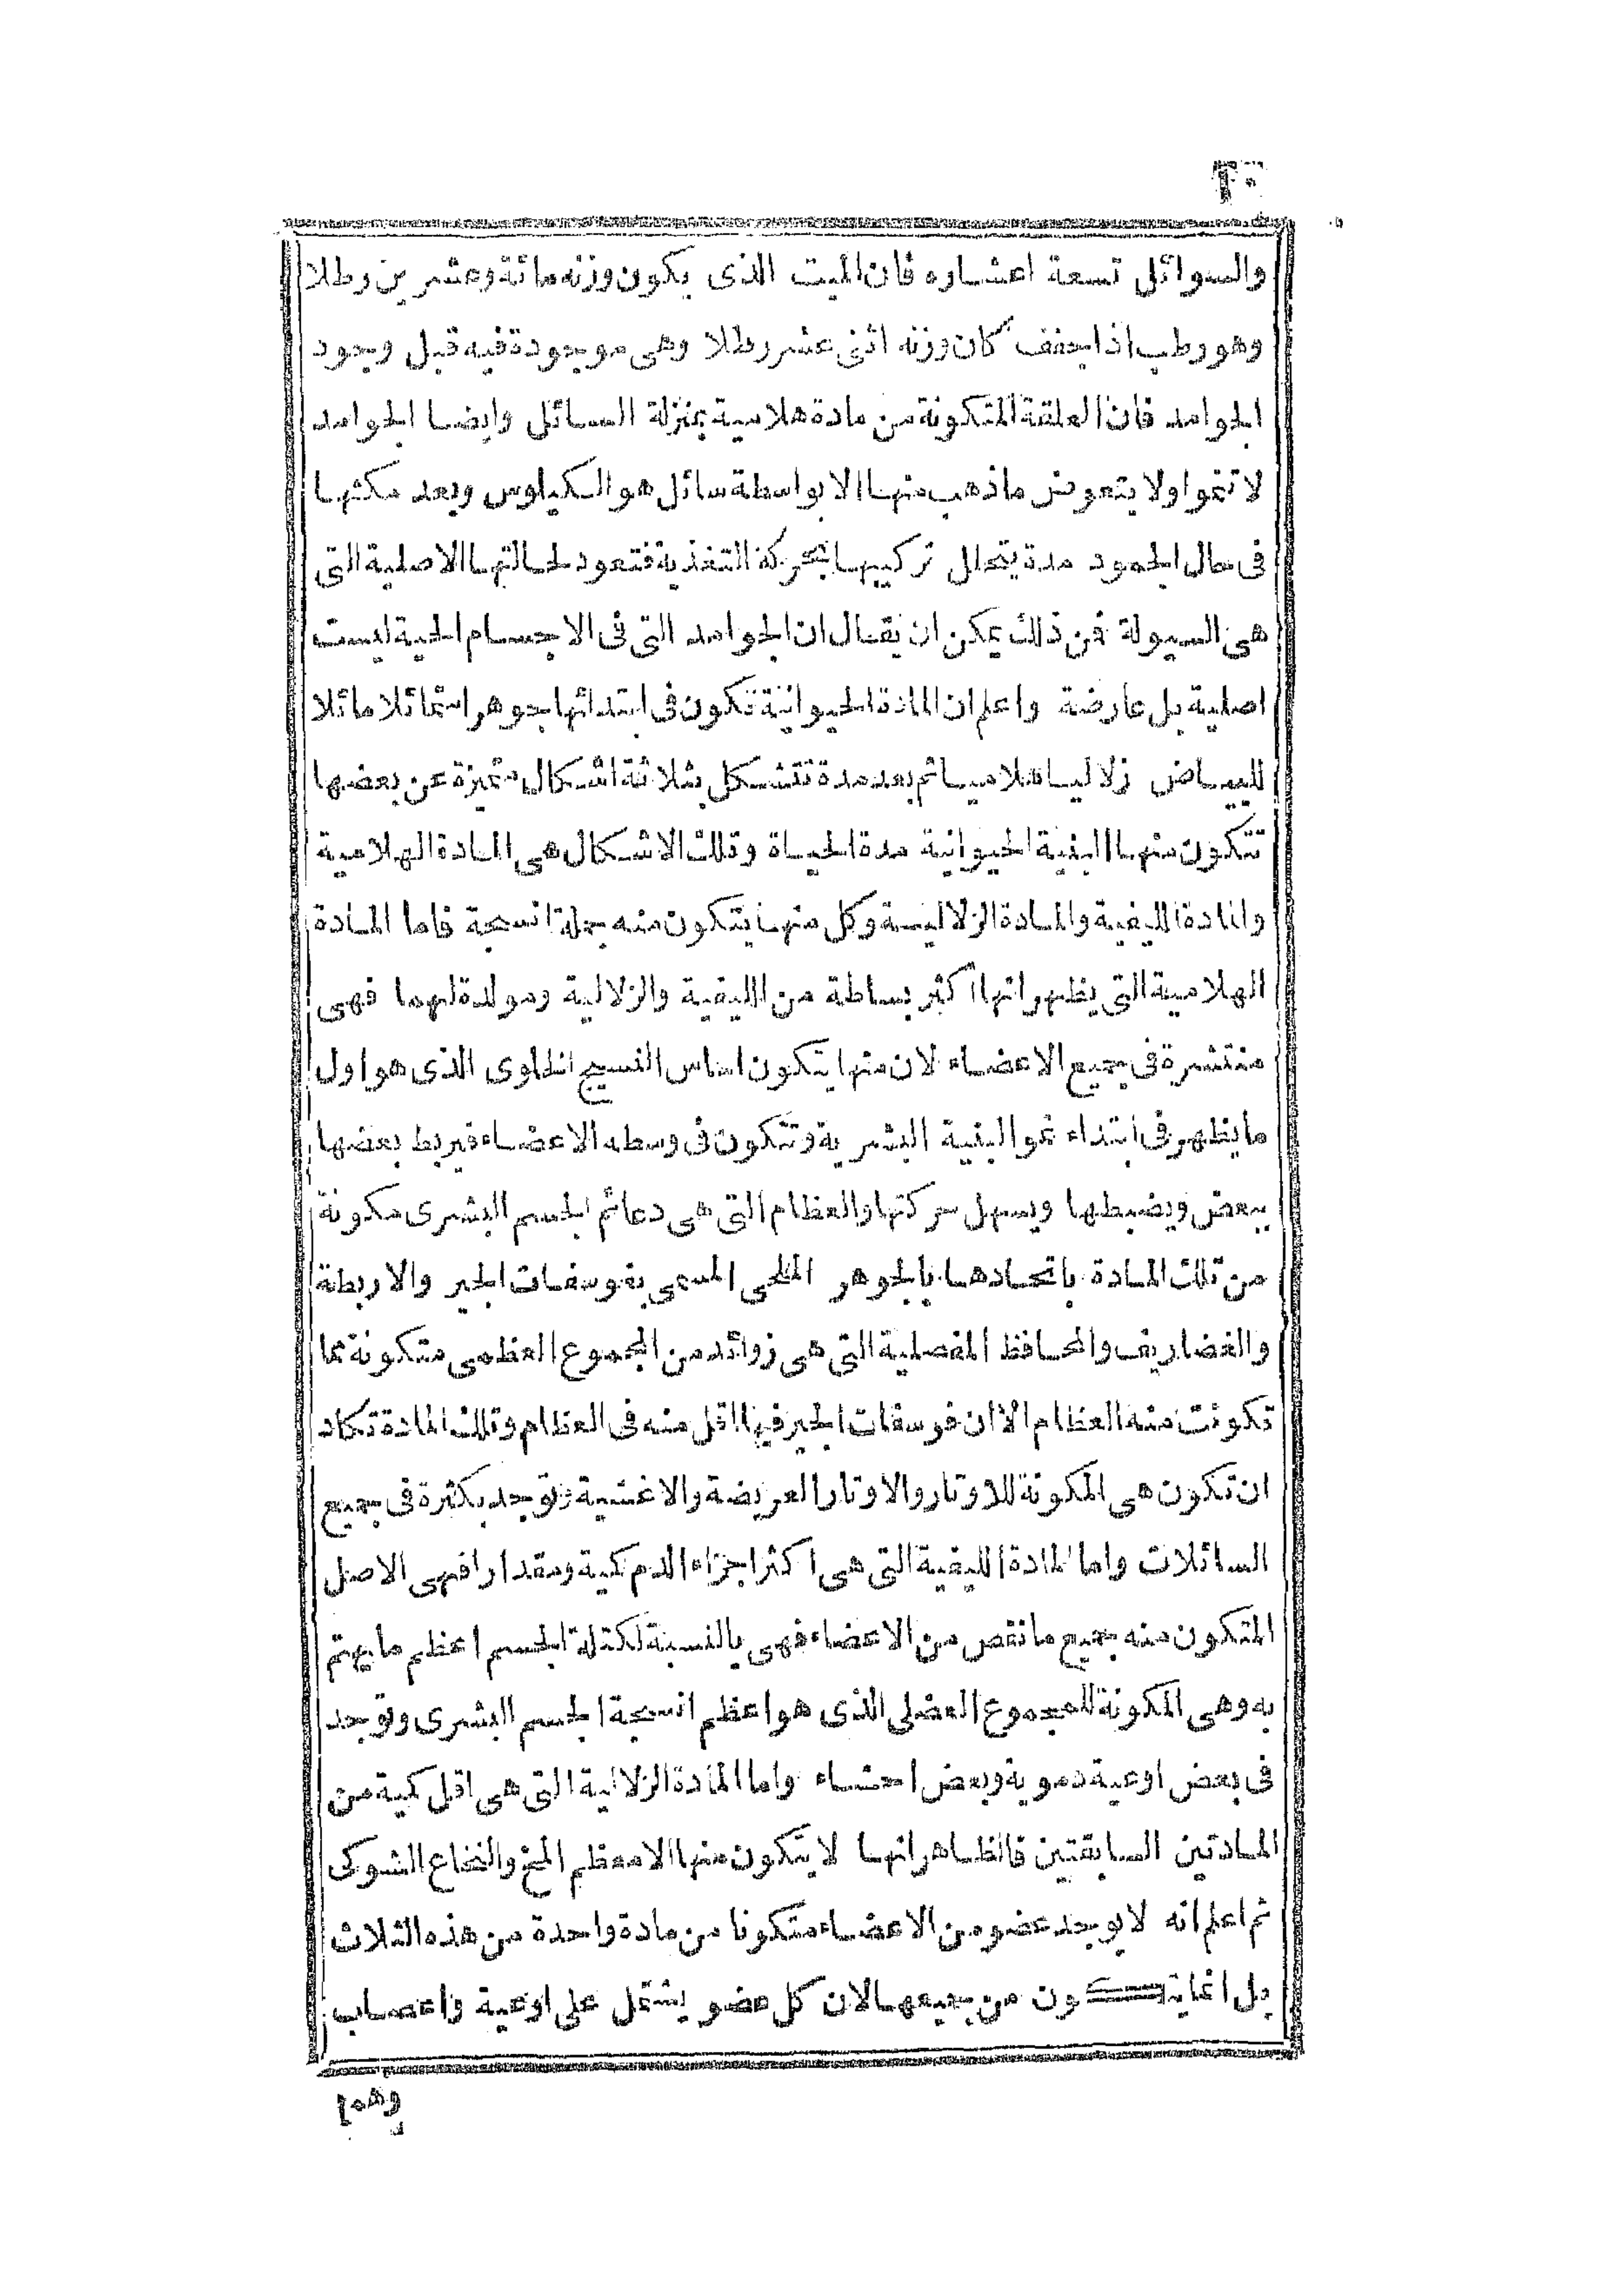 ٢٠
والسوائل تسعة اعشاره فان الميت الذى يكون وزنه مائة وعشرين رطلا
وهو رطب اذا جفف كان وزنه اثنى عشر رطلا وهى موجودة فيه قبل وجود
الجوامد فان العلقة المتكونة من مادة هلامية بمنزلة السائل وايضا الجوامد
لا تنموا ولا يتعوض ما ذهب منها الا بواسطة سائل هو الكيلوس وبعد مكثها
فى حال الجمود مدة يتحلل تركيبها بحركة التغذية فتعود لحالتها الاصلية التى
هى السيولة فمن ذلك يمكن ان يقال ان الجوامد التى فى الاجسام الحية ليست
اصلية بل عارضة واعلم ان المادة الحيوانية تكون فى ابتدائها جوهرا متماثلا مائلا
للبياض زلاليا هلاميا ثم بعد مدة تتشكل بثلاثة اشكال متميزة عن بعضها
تتكون منها البنية الحيوانية مدة الحياة وتلك الاشكال هى المادة الهلامية
والمادة الليفية والمادة الزلالية وكل منها يتكون منه جملة انسجة فاما المادة
الهلامية التى يظهر انها اكثر بساطة من الليفية والزلالية ومولدة لهما فهى
منتشرة فى جميع الاعضاء لان منها يتكون اساس النسيج الخلوى الذى هو اول
ما يظهر فى ابتداء نمو البنية البشرية وتتكون فى وسطه الاعضاء فيربط بعضها
ببعض ويضبطها ويسهل حركتها والعظام التى هى دعائم الجسم البشرى مكونة
من تلك المادة باتحادها بالجوهر الملحى المسمى بفوسفات الجير والاربطة
والغضاريف والمحافظ المفصلية التى هى زوائد من المجموع العظمى متكونة مما
تكونت منه العظام الا ان فوسفات الجير فيها اقل منه فى العظام وتلك المادة تكاد
ان تكون هى المكونة للاوتار والاوتار العريضة والاغشية وتوجد بكثرة فى جميع
السائلات واما المادة الليفية التى هى اكثر اجزاء الدم كمية ومقدارا فهى الاصل
المتكون منه جميع ما نقص من الاعضاء فهى بالنسبة لكتلة الجسم اعظم ما يهتم
به وهى المكونة للمجموع العضلى الذى هو اعظم انسجة الجسم البشرى وتوجد
فى بعض اوعية دموية وبعض احشاء واما المادة الزلالية التى هى اقل كمية من
المادتين السابقتين فالظاهر انها لا يتكون منها الا معظم المخ والنخاع الشوكى
ثم اعلم انه لا يوجد عضو من الاعضاء متكونا من مادة واحدة من هذه الثلاث
بل انما يتكون من جميعها لان كل عضو يشتمل على اوعية واعصاب
وهما